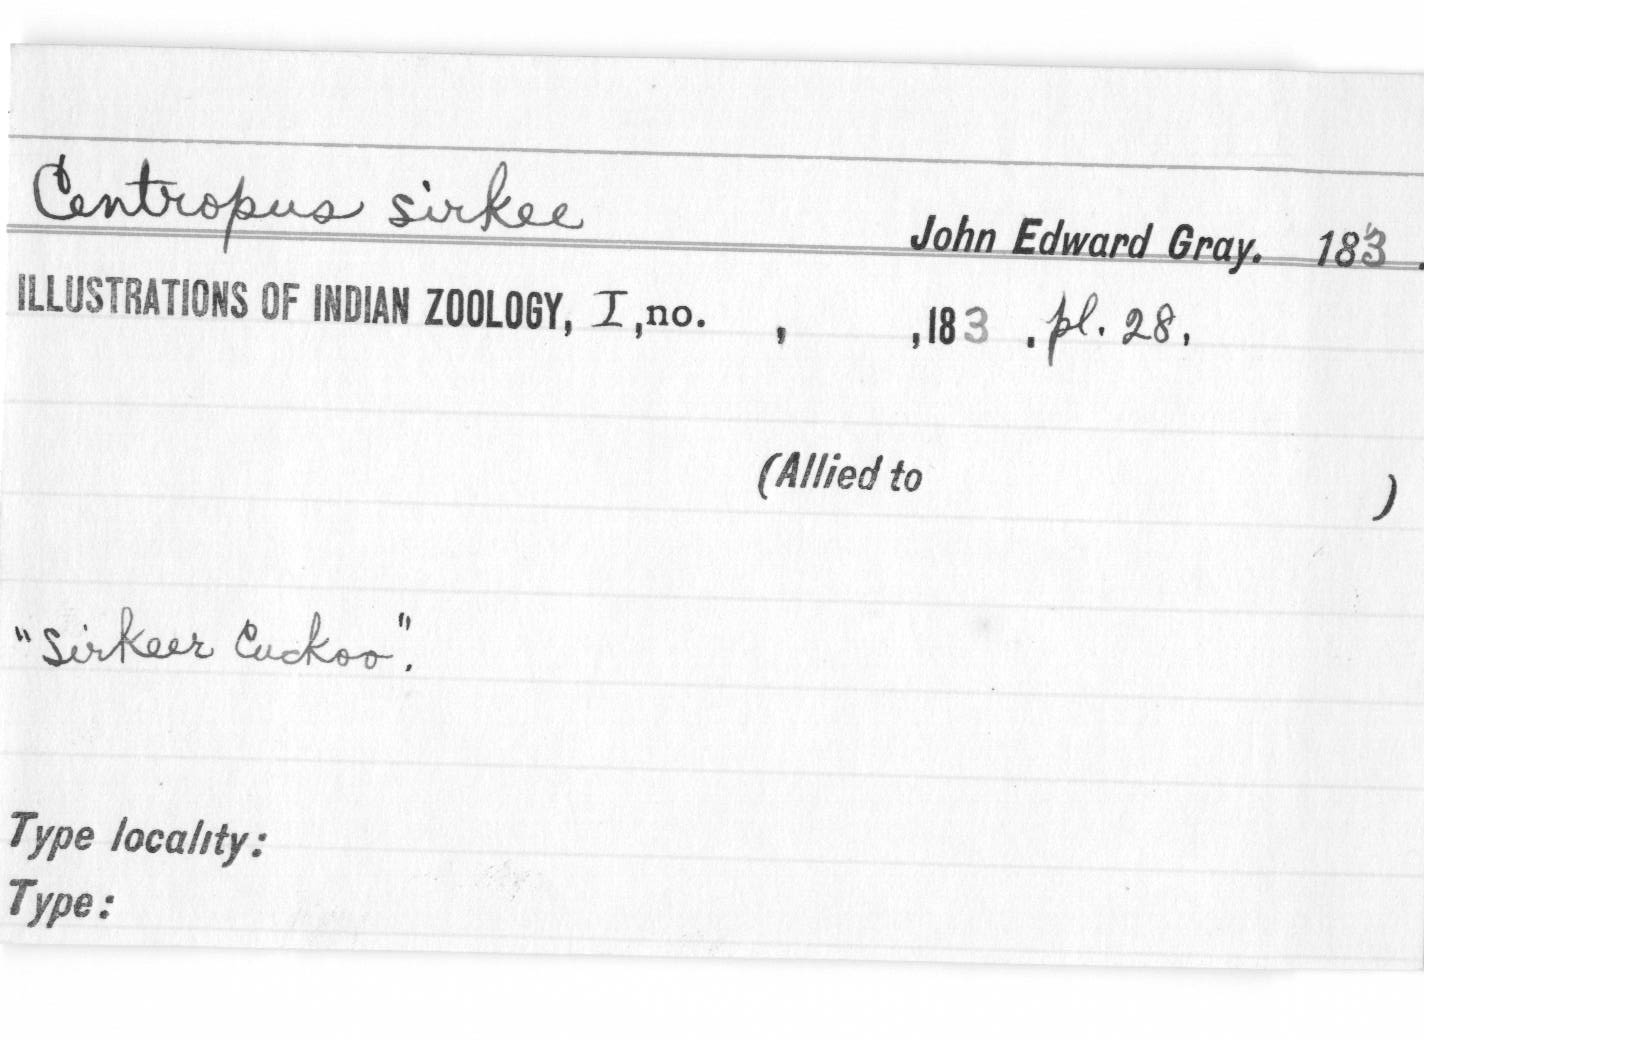 Centropus sirkee
John Edward Gray. 183 .
ILLUSTRATIONS OF INDIAN ZOOLOGY, I, no. , ,183 . pl. 28.
(Allied to )
"Sirkeer Cuckoo".
Type locality:
Type: